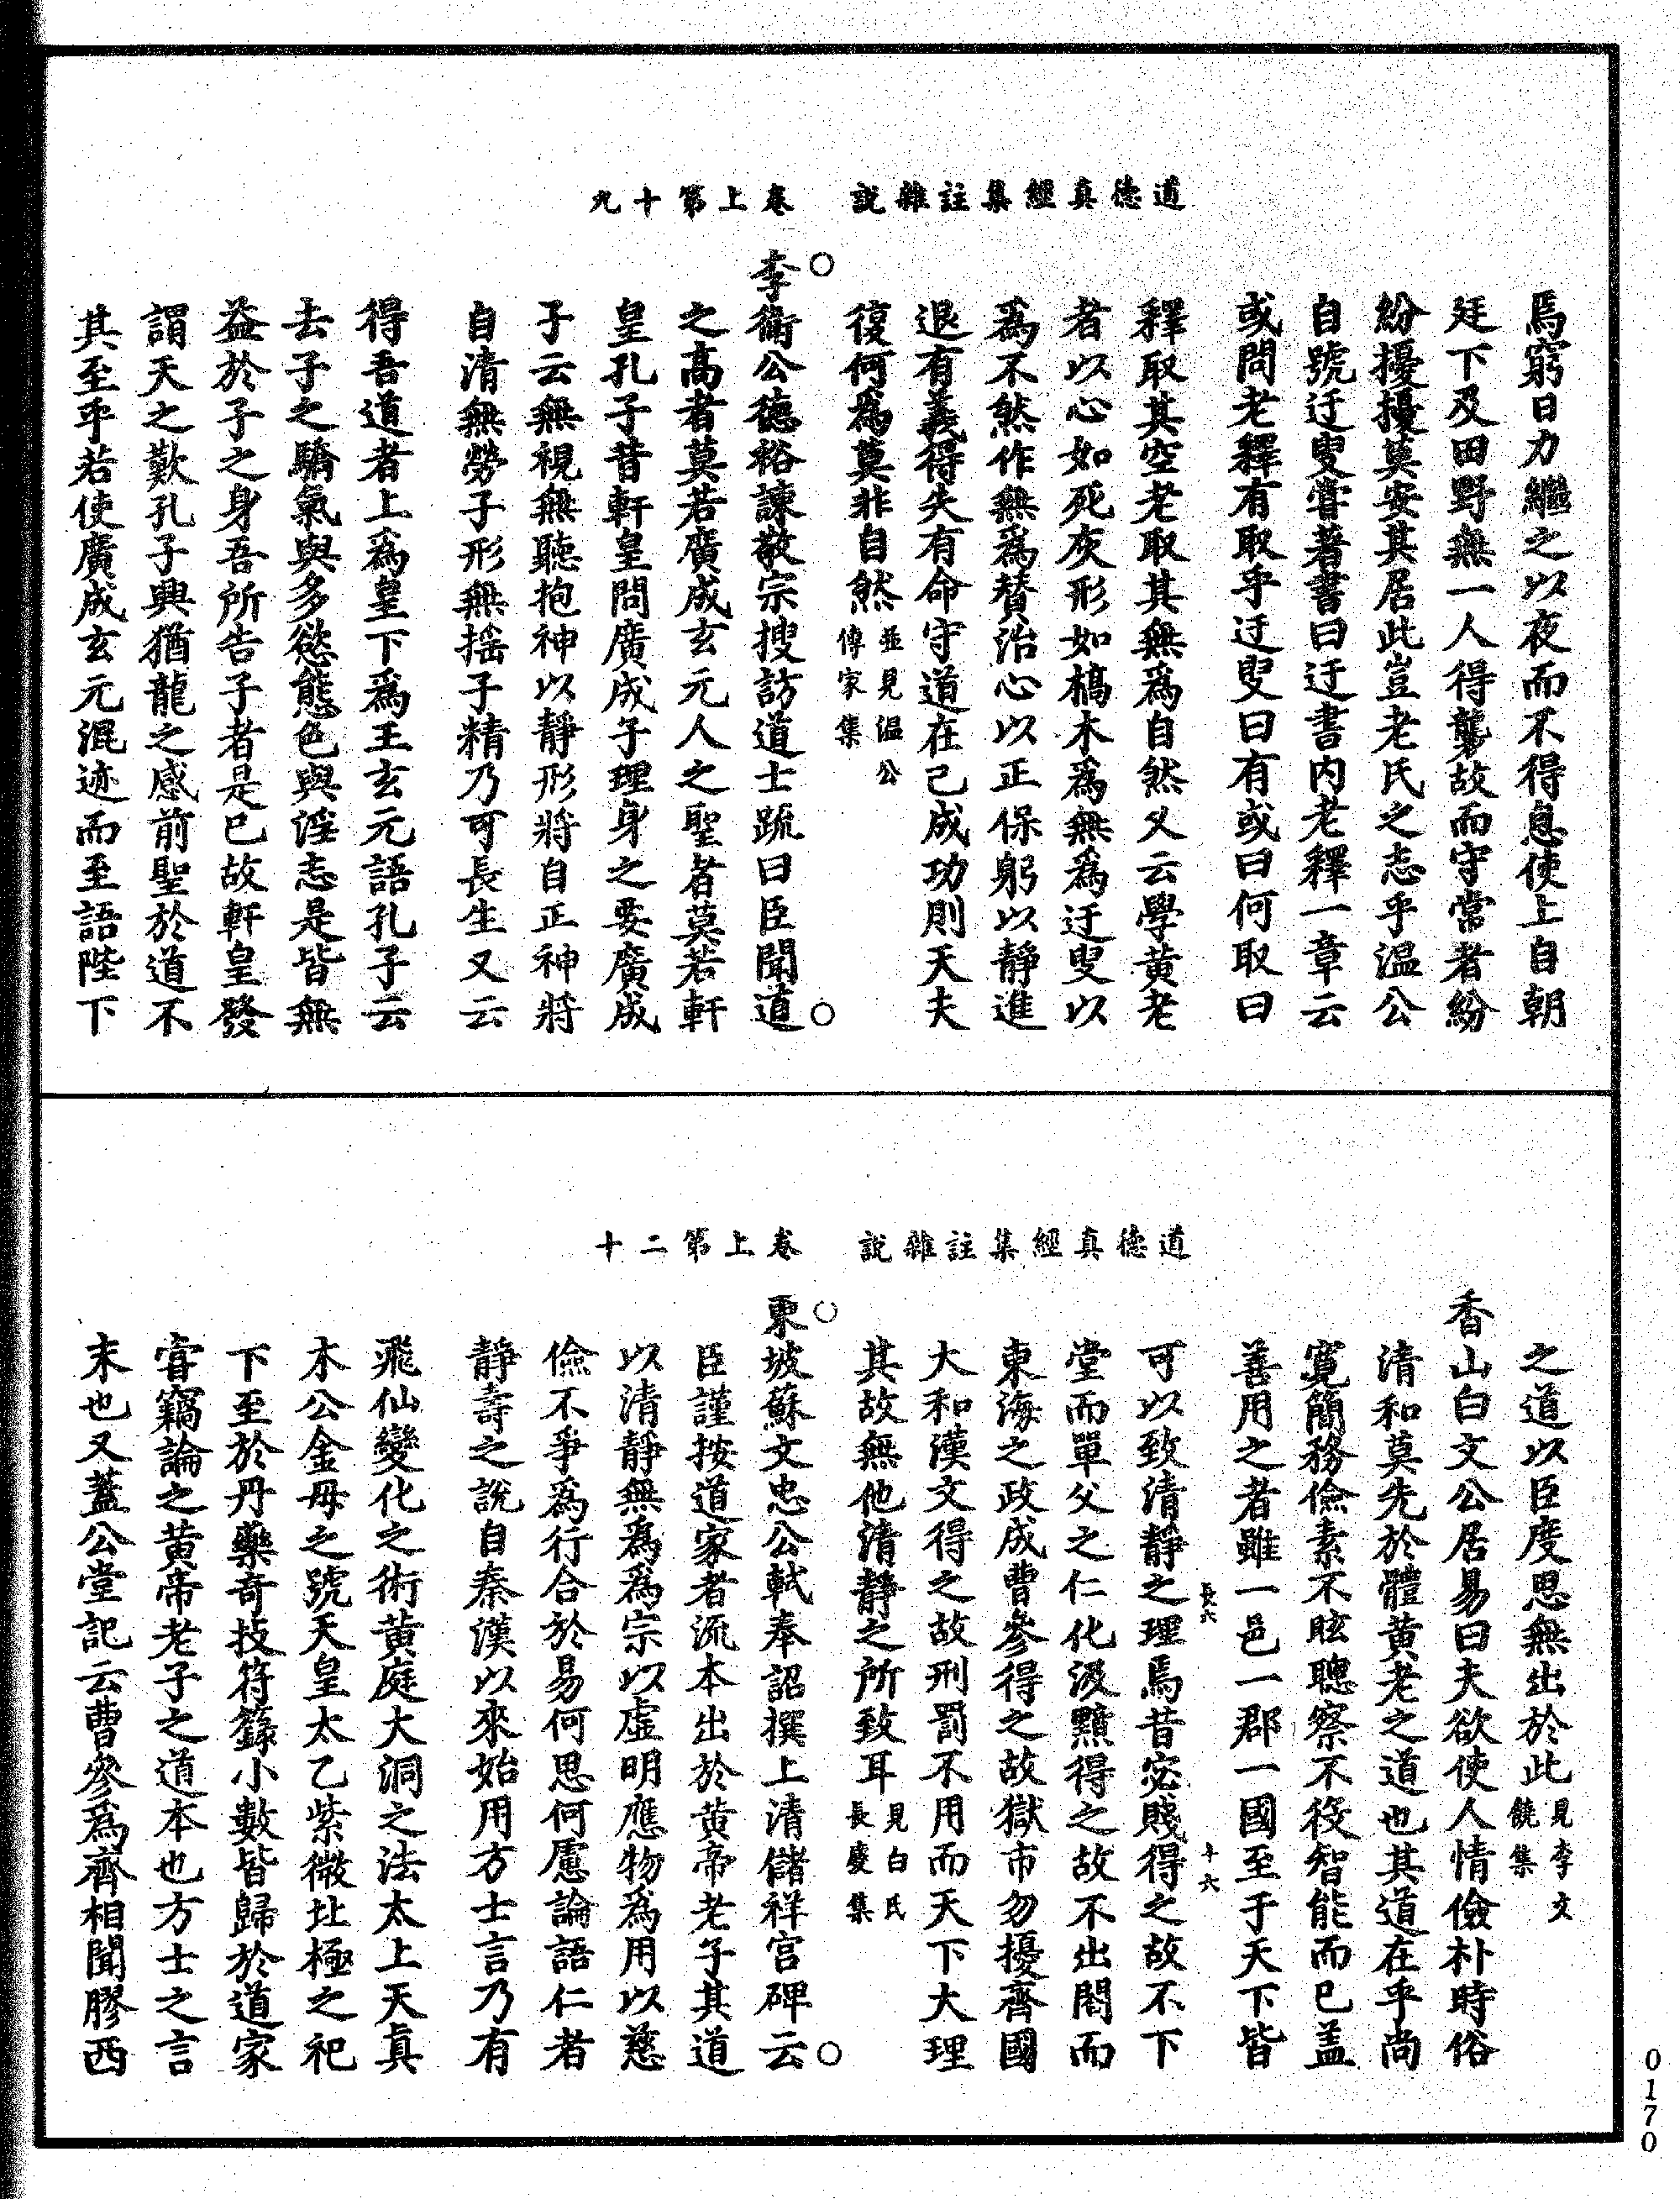 道德真經集註雜說　卷上第十九
焉窮日力繼之以夜而不得息使上自朝
廷下及田野無一人得襲故而守常者紛
紛擾擾莫安其居此豈老氏之志乎温公
自號迂叟甞著書曰迂書内老釋一章云
或問老釋有取乎迂叟曰有或曰何取曰
釋取其空老取其無爲自然又云學黄老
者以心如死灰形如槁木爲無爲迂叟以
爲不然作無爲賛治心以正保躬以靜進
退有義得失有命守道在己成功則天夫
復何爲莫非自然並見温公傳家集
○李衛公德裕諫敬宗搜訪道士疏曰臣聞道○
之高者莫若廣成玄元人之聖者莫若軒
皇孔子昔軒皇問廣成子理身之要廣成
子云無視無聽抱神以靜形將自正神將
自清無勞子形無摇子精乃可長生又云
得吾道者上爲皇下爲王玄元語孔子云
去子之驕氣與多慾態色與淫志是皆無
益於子之身吾所告子者是已故軒皇發
謂天之歎孔子興猶龍之感前聖於道不
其至乎若使廣成玄元混迹而至語陛下
道德真經集註雜說　卷上第二十
之道以臣度思無出於此見李文饒集
香山白文公居易曰夫欲使人情儉朴時俗
清和莫先於體黄老之道也其道在乎尚
寛簡務儉素不眩聰察不役智能而已盖
善用之者雖一邑一郡一國至于天下皆
長六　十六
可以致清靜之理焉昔宓賤得之故不下
堂而單父之仁化汲黯得之故不出閤而
東海之政成曹參得之故獄市勿擾齊國
大和漢文得之故刑罰不用而天下大理
其故無他清靜之所致耳見白氏長慶集
○東坡蘇文忠公軾奉詔撰上清儲祥宫碑云○
臣謹按道家者流本出於黄帝老子其道
以清靜無爲爲宗以虚明應物爲用以慈
儉不爭爲行合於易何思何慮論語仁者
靜壽之說自秦漢以來始用方士言乃有
飛仙變化之術黄庭大洞之法太上天真
木公金母之號天皇太乙紫微北極之祀
下至於丹藥奇技符籙小數皆歸於道家
甞竊論之黄帝老子之道本也方士之言
末也又蓋公堂記云曹參爲齊相聞膠西
0170